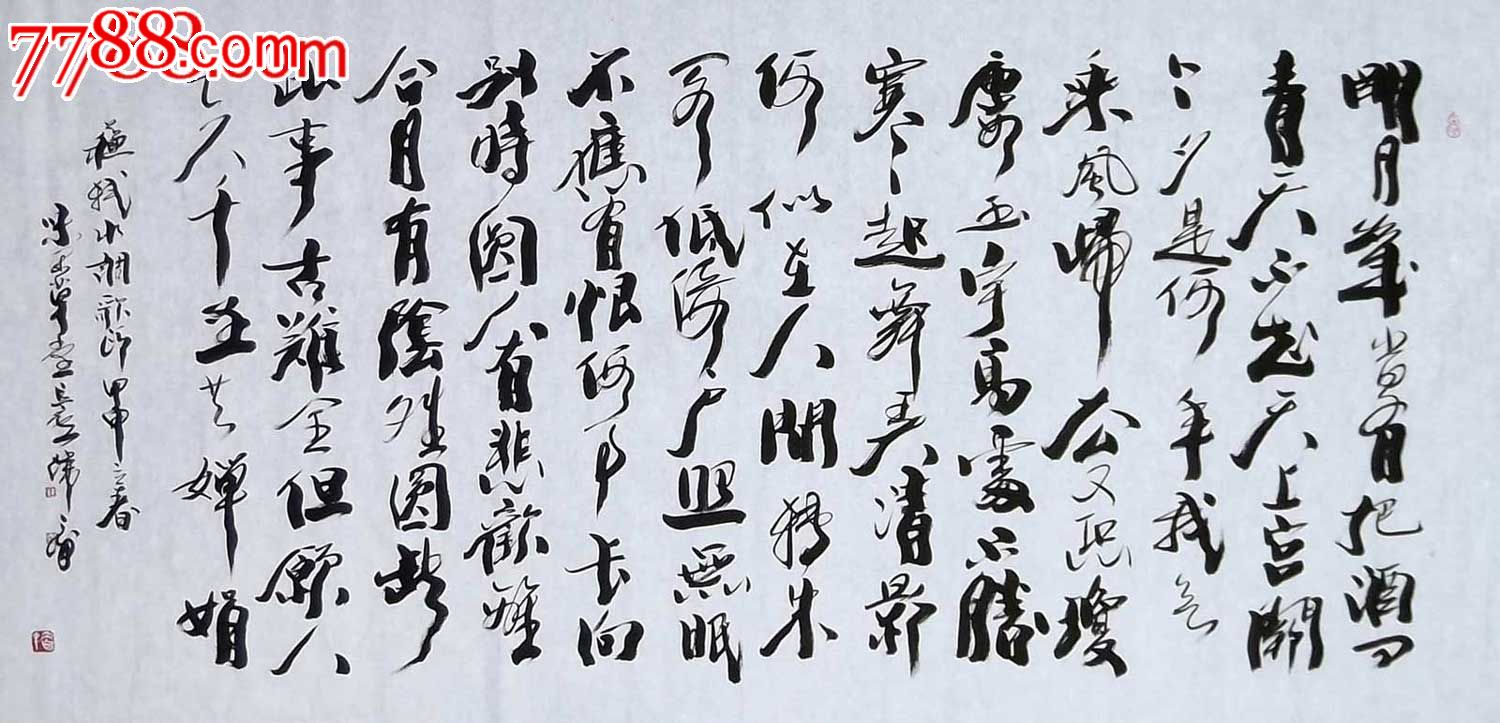 明月幾時有把酒问
青天不知天上宫闕
今夕是何年我欲
乘風歸去又恐瓊
樓玉宇高處不勝
寒起舞弄清影
何似在人間轉朱
阁低綺户照無眠
不應有恨何事長向
别時圓人有悲歡離
合月有陰晴圓缺
此事古難全但願人
長久千里共嬋娟
蘇軾水調歌頭甲申之春
草堂
7788.com